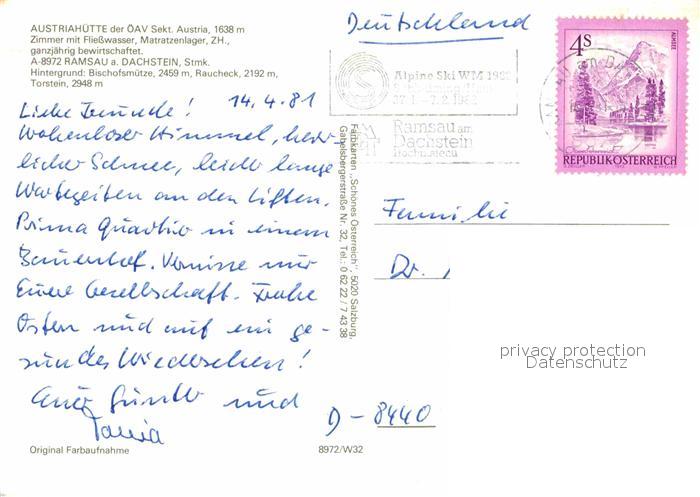 AUSTRIAHÜTTE der ÖAV Sekt. Austria, 1638 m
Zimmer mit Fließwasser, Matratzenlager, ZH.,
ganzjährig bewirtschaftet.
A-8972 RAMSAU a. DACHSTEIN, Stmk.
Hintergrund: Bischofsmütze, 2459 m, Raucheck, 2192 m,
Torstein, 2948 m
14.4.81
Liebe Freunde!
Wolkenloser Himmel, herr-
licher Schnee, leider lange
Wartezeiten an den Liften.
Prima Quartier in einem
Bauernhof. Vermisse nur
Eure Gesellschaft. Frohe
Ostern und auf ein ge-
sundes Wiedersehen!
Euer Günter und
Original Farbaufnahme
8972/W32
Farbkarten „Schönes Österreich", 5020 Salzburg,
Gabelsbergerstraße Nr. 32, Tel.: 0 62 22 / 7 43 38
Deutschland
Alpine Ski WM 1982
27.1.-7.2.1982
Ramsau am
Dachstein
4S
ALMSEE
REPUBLIK ÖSTERREICH
Familie
Dr.
D-8440
privacy protection
Datenschutz